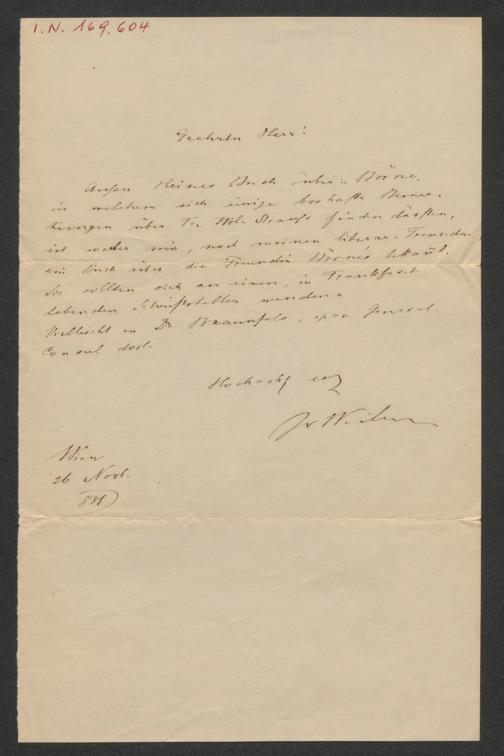 I.N. 169.604
Geehrter Herr!
Außer Heines Buch über Börne,
in welchem sich einige boshafte Bemer-
kungen über Fr. Wohl Strauß finden dürften,
ist weder mir, noch meinen literar. Freunden,
ein Buch über die Freundin Börne's bekannt.
Sie sollten sich an einen, in Frankfurt
lebenden Schriftsteller wenden.
Vielleicht an Dr Braunfels, span. General-
Consul dort.
Hochacht
Wien
26 Novb.
881